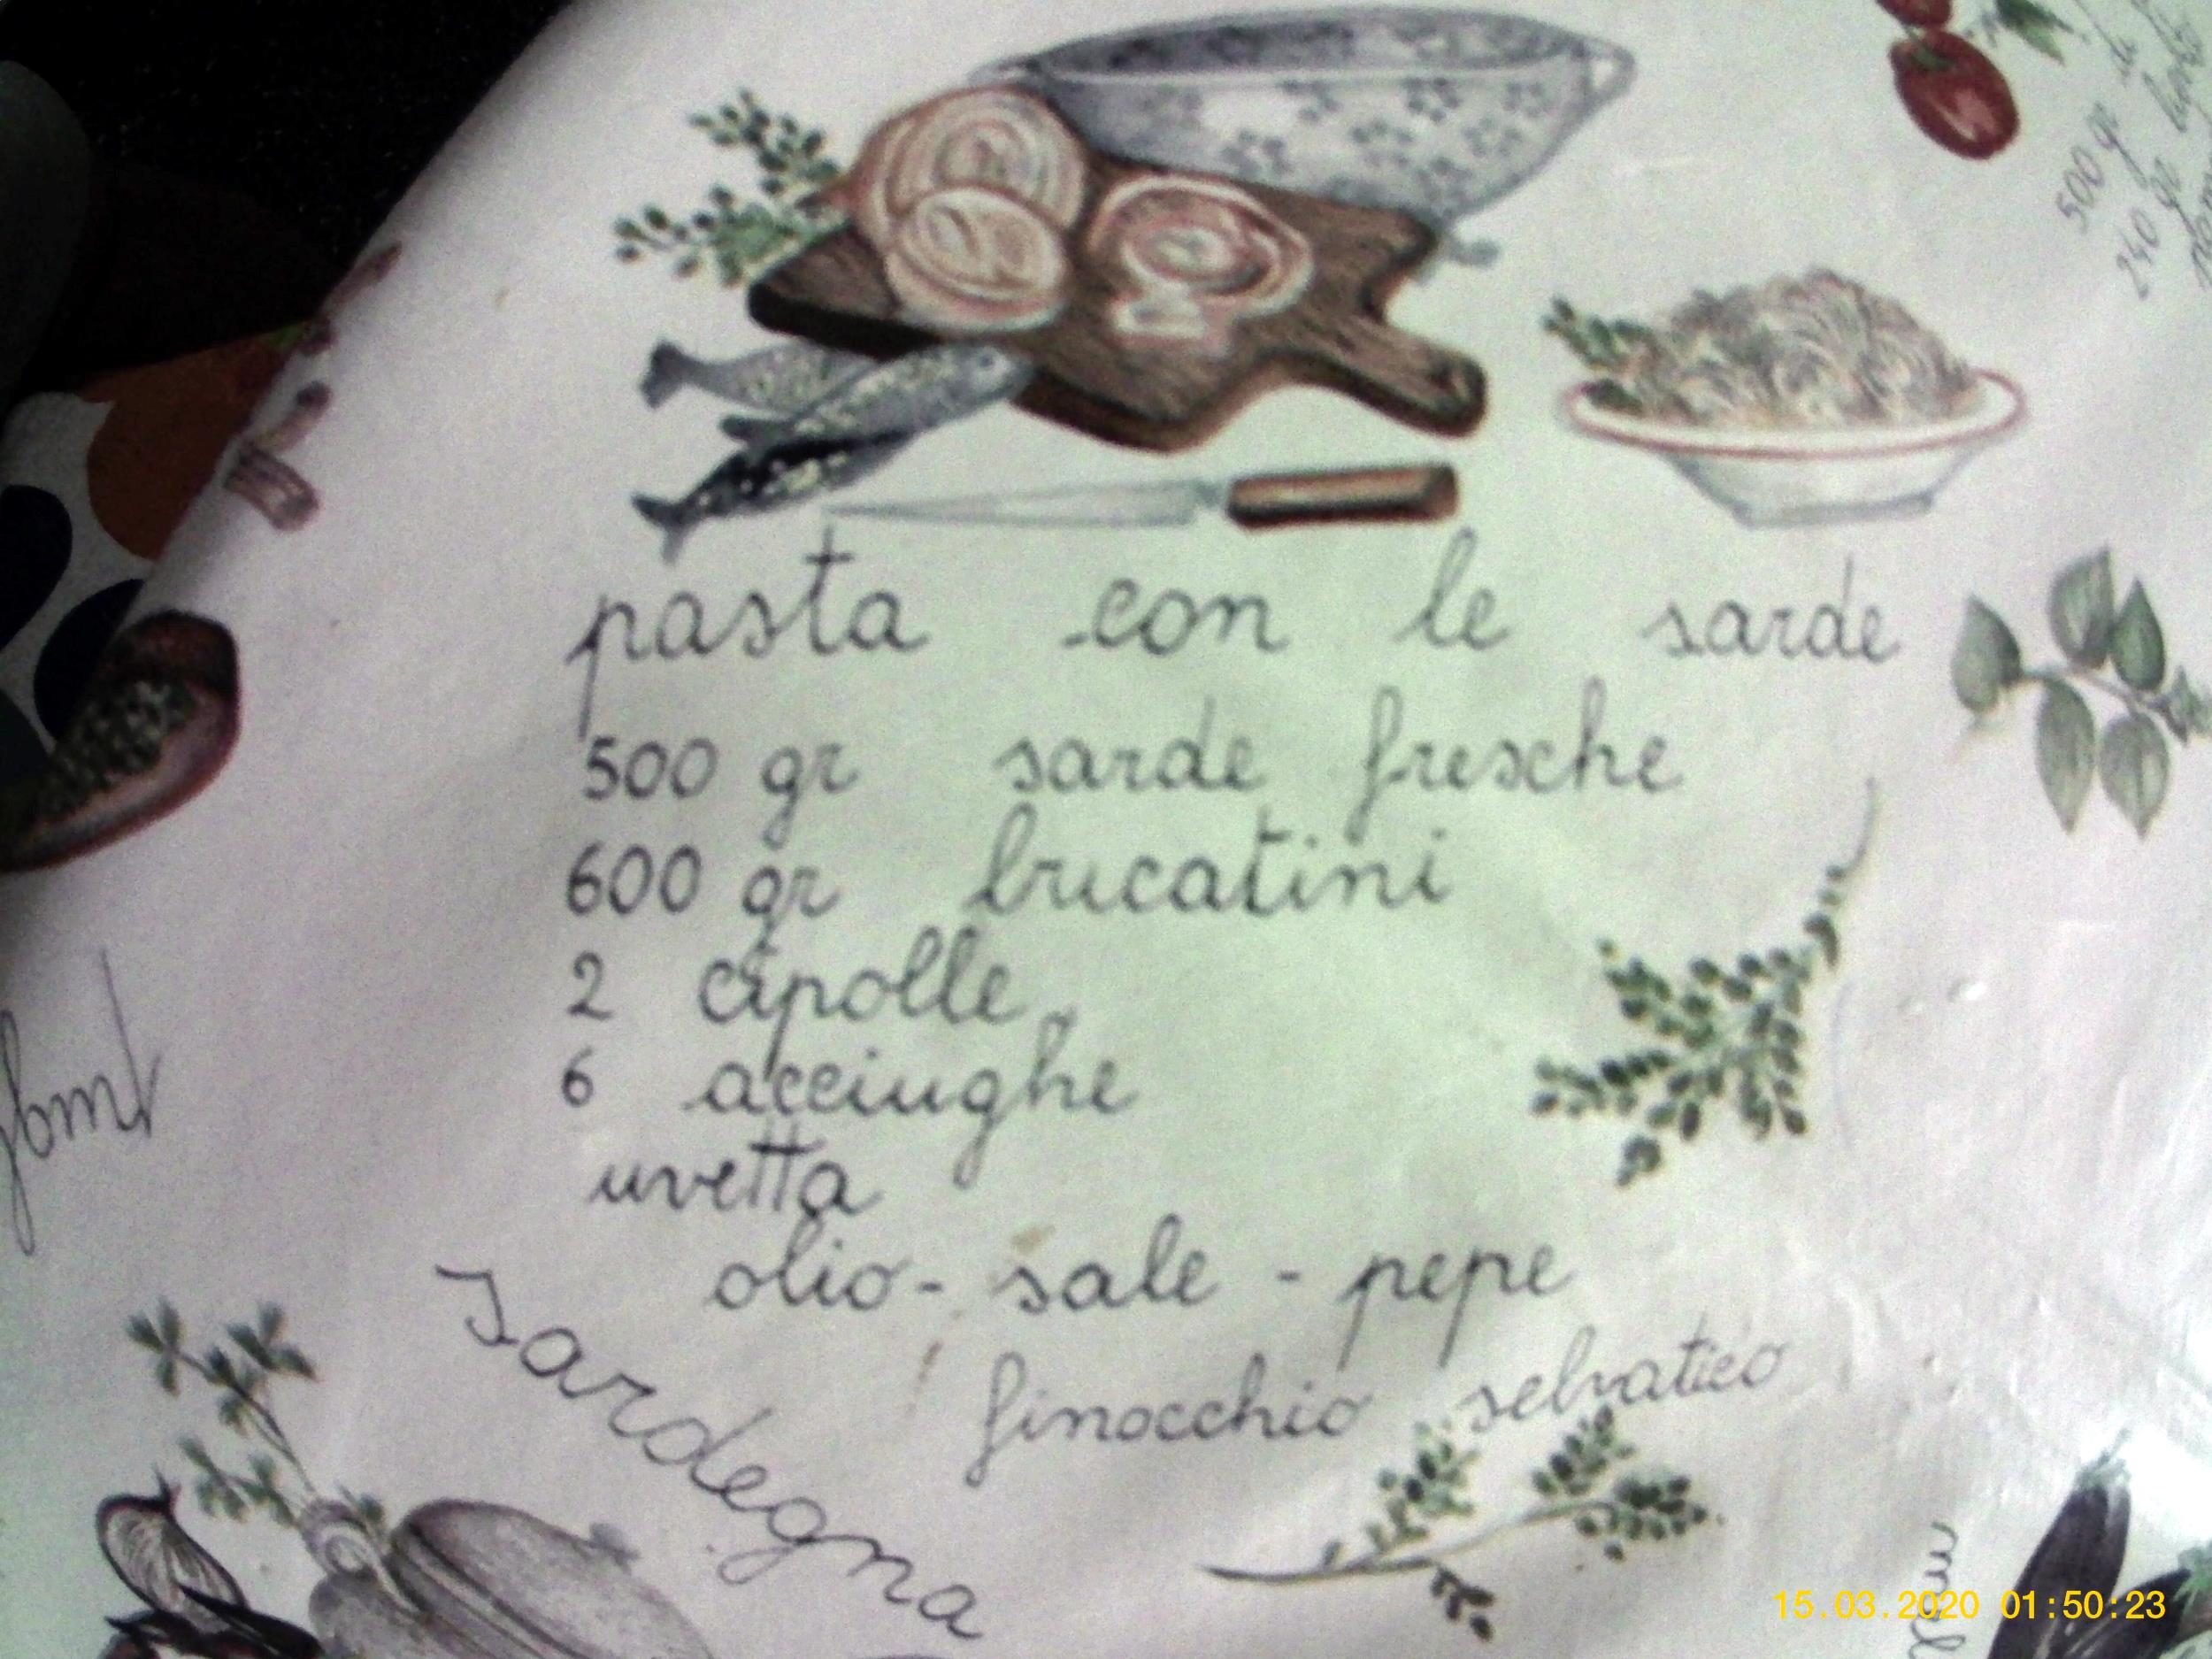 pasta con le sarde
500 gr sarde fresche
600 gr bucatini
2 cipolle
6 acciughe
uvetta
olio - sale - pepe
finocchio selvatico
sardegna
500 gr di
240 gr
15.03.2020 01:50:23